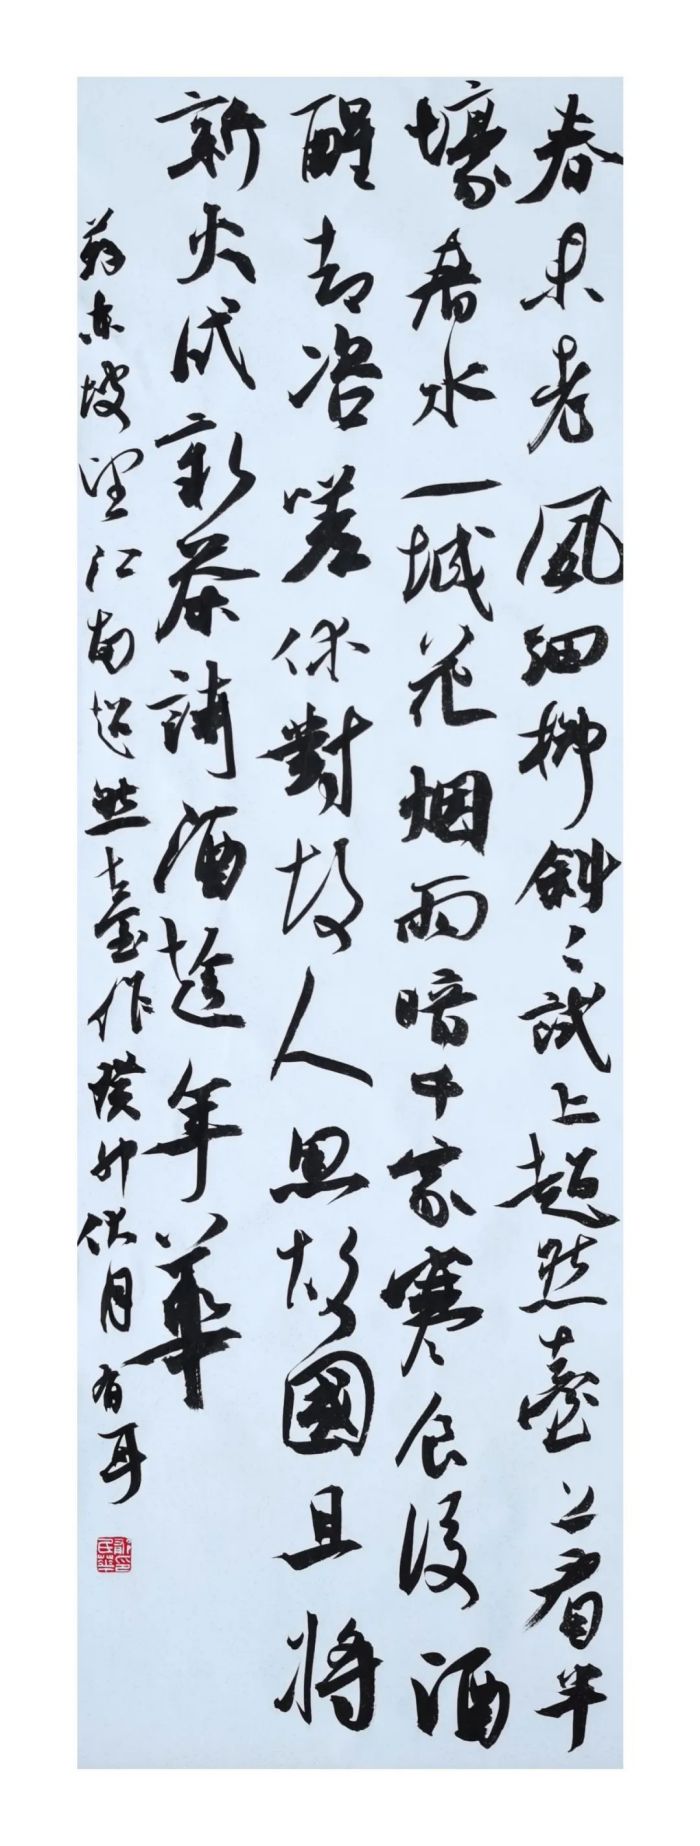 春未老風細柳斜〻試上超然臺上看半
壕春水一城花烟雨暗千家寒食後酒
醒却咨嗟休對故人思故國且將
新火试新茶詩酒趁年華
蘇东坡望江南超然臺作癸卯伏月有耳